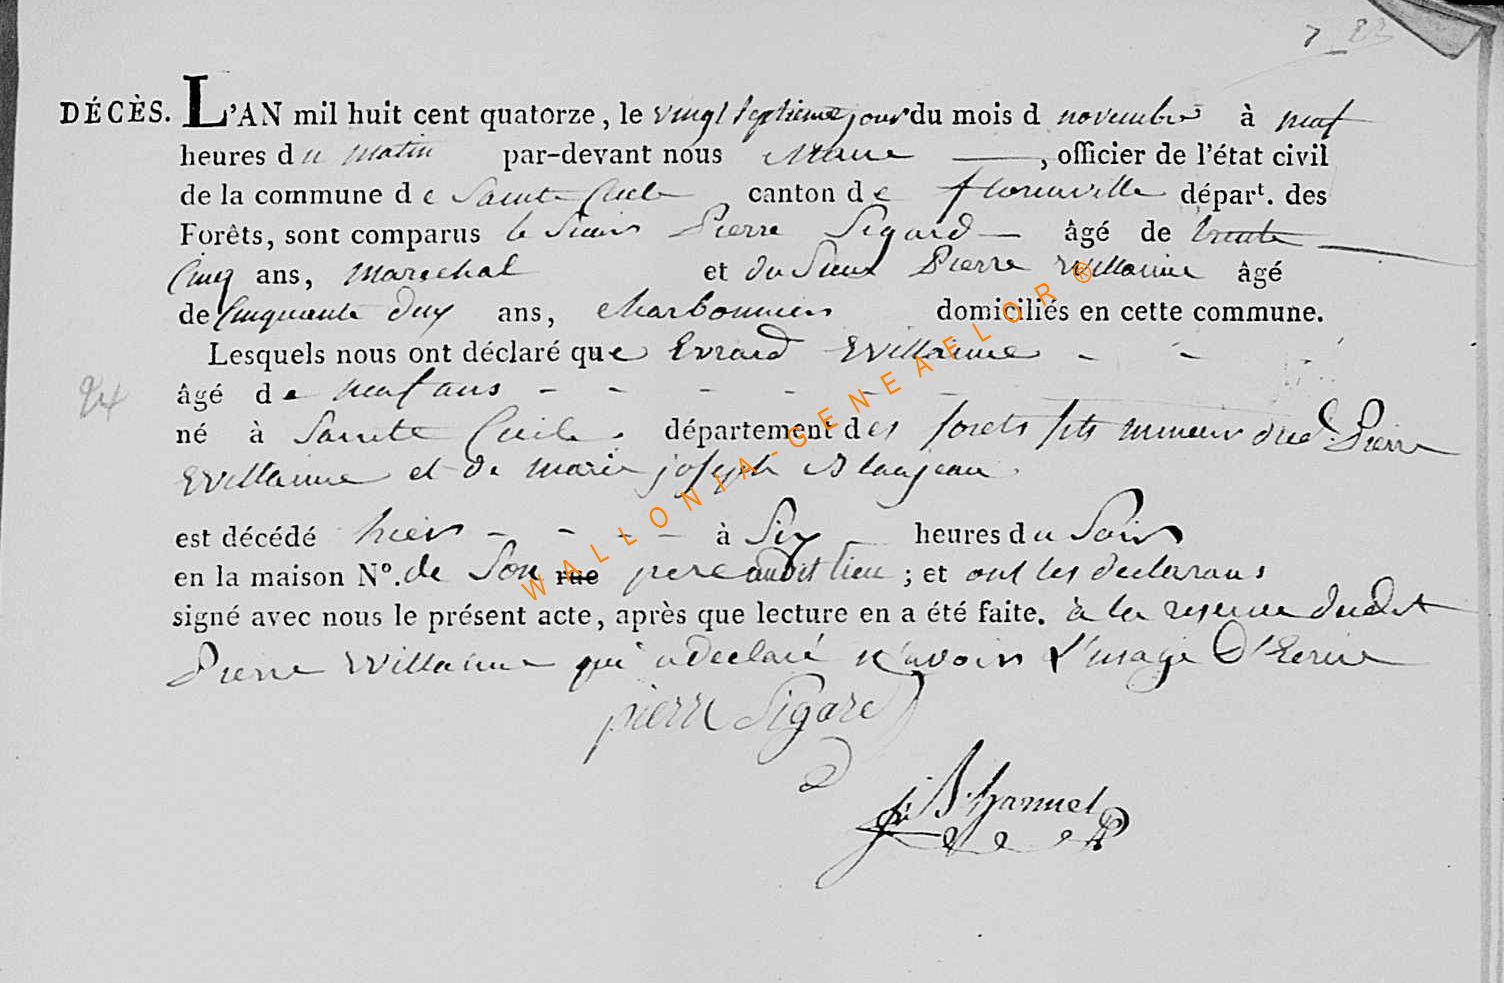 7 23
DÉCÈS. L'AN mil huit cent quatorze, le vingt septieme jour du mois d novembre à neuf
heures du matin par-devant nous Maire , officier de l'état civil
de la commune de Sainte Cecile canton de florenville départ. des
Forêts, sont comparus le Sieur Pierre Sigard âgé de trente
Cinq ans, marechal et du Sieur Pierre Willaime âgé
de Cinquante deux ans, charbonnier domiciliés en cette commune.
Lesquels nous ont déclaré que Evrard Willaime - - -
âgé de neuf ans - - - - - -
né à Sainte Cecile. département des forets fils mineur dud. Pierre
Willaime et de marie joseph Blanjean.
est décédé hier - - - - à Six heures du Soir
en la maison N°. de Son rue pere audit lieu ; et ont les declarans
signé avec nous le présent acte, après que lecture en a été faite. à la reserve dudit
Pierre Willaime qui a declaré n'avoir l'usage d'Ecrire
pierre Sigard
J. B. hannuel
WALLONIA-GENEAELOR®